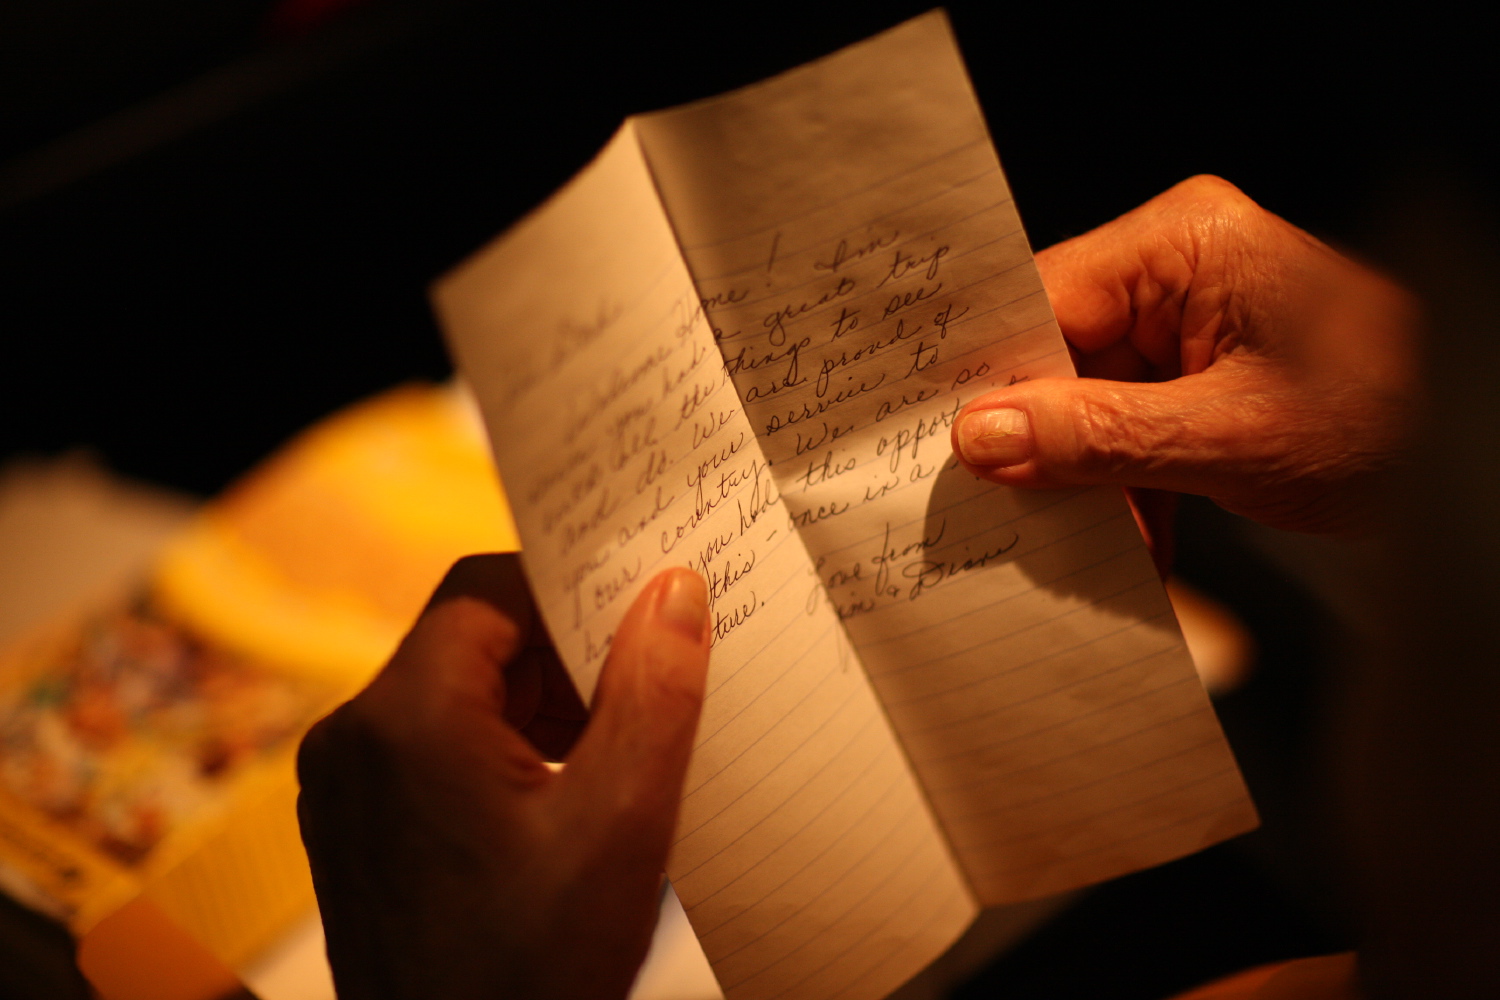 Welcome Home! I'm
sure you had a great trip
with all the things to see
and do. We are proud of
you and your service to
our country. We are so
you had this
this - once in a
ture.
Love from
Jim & Diane